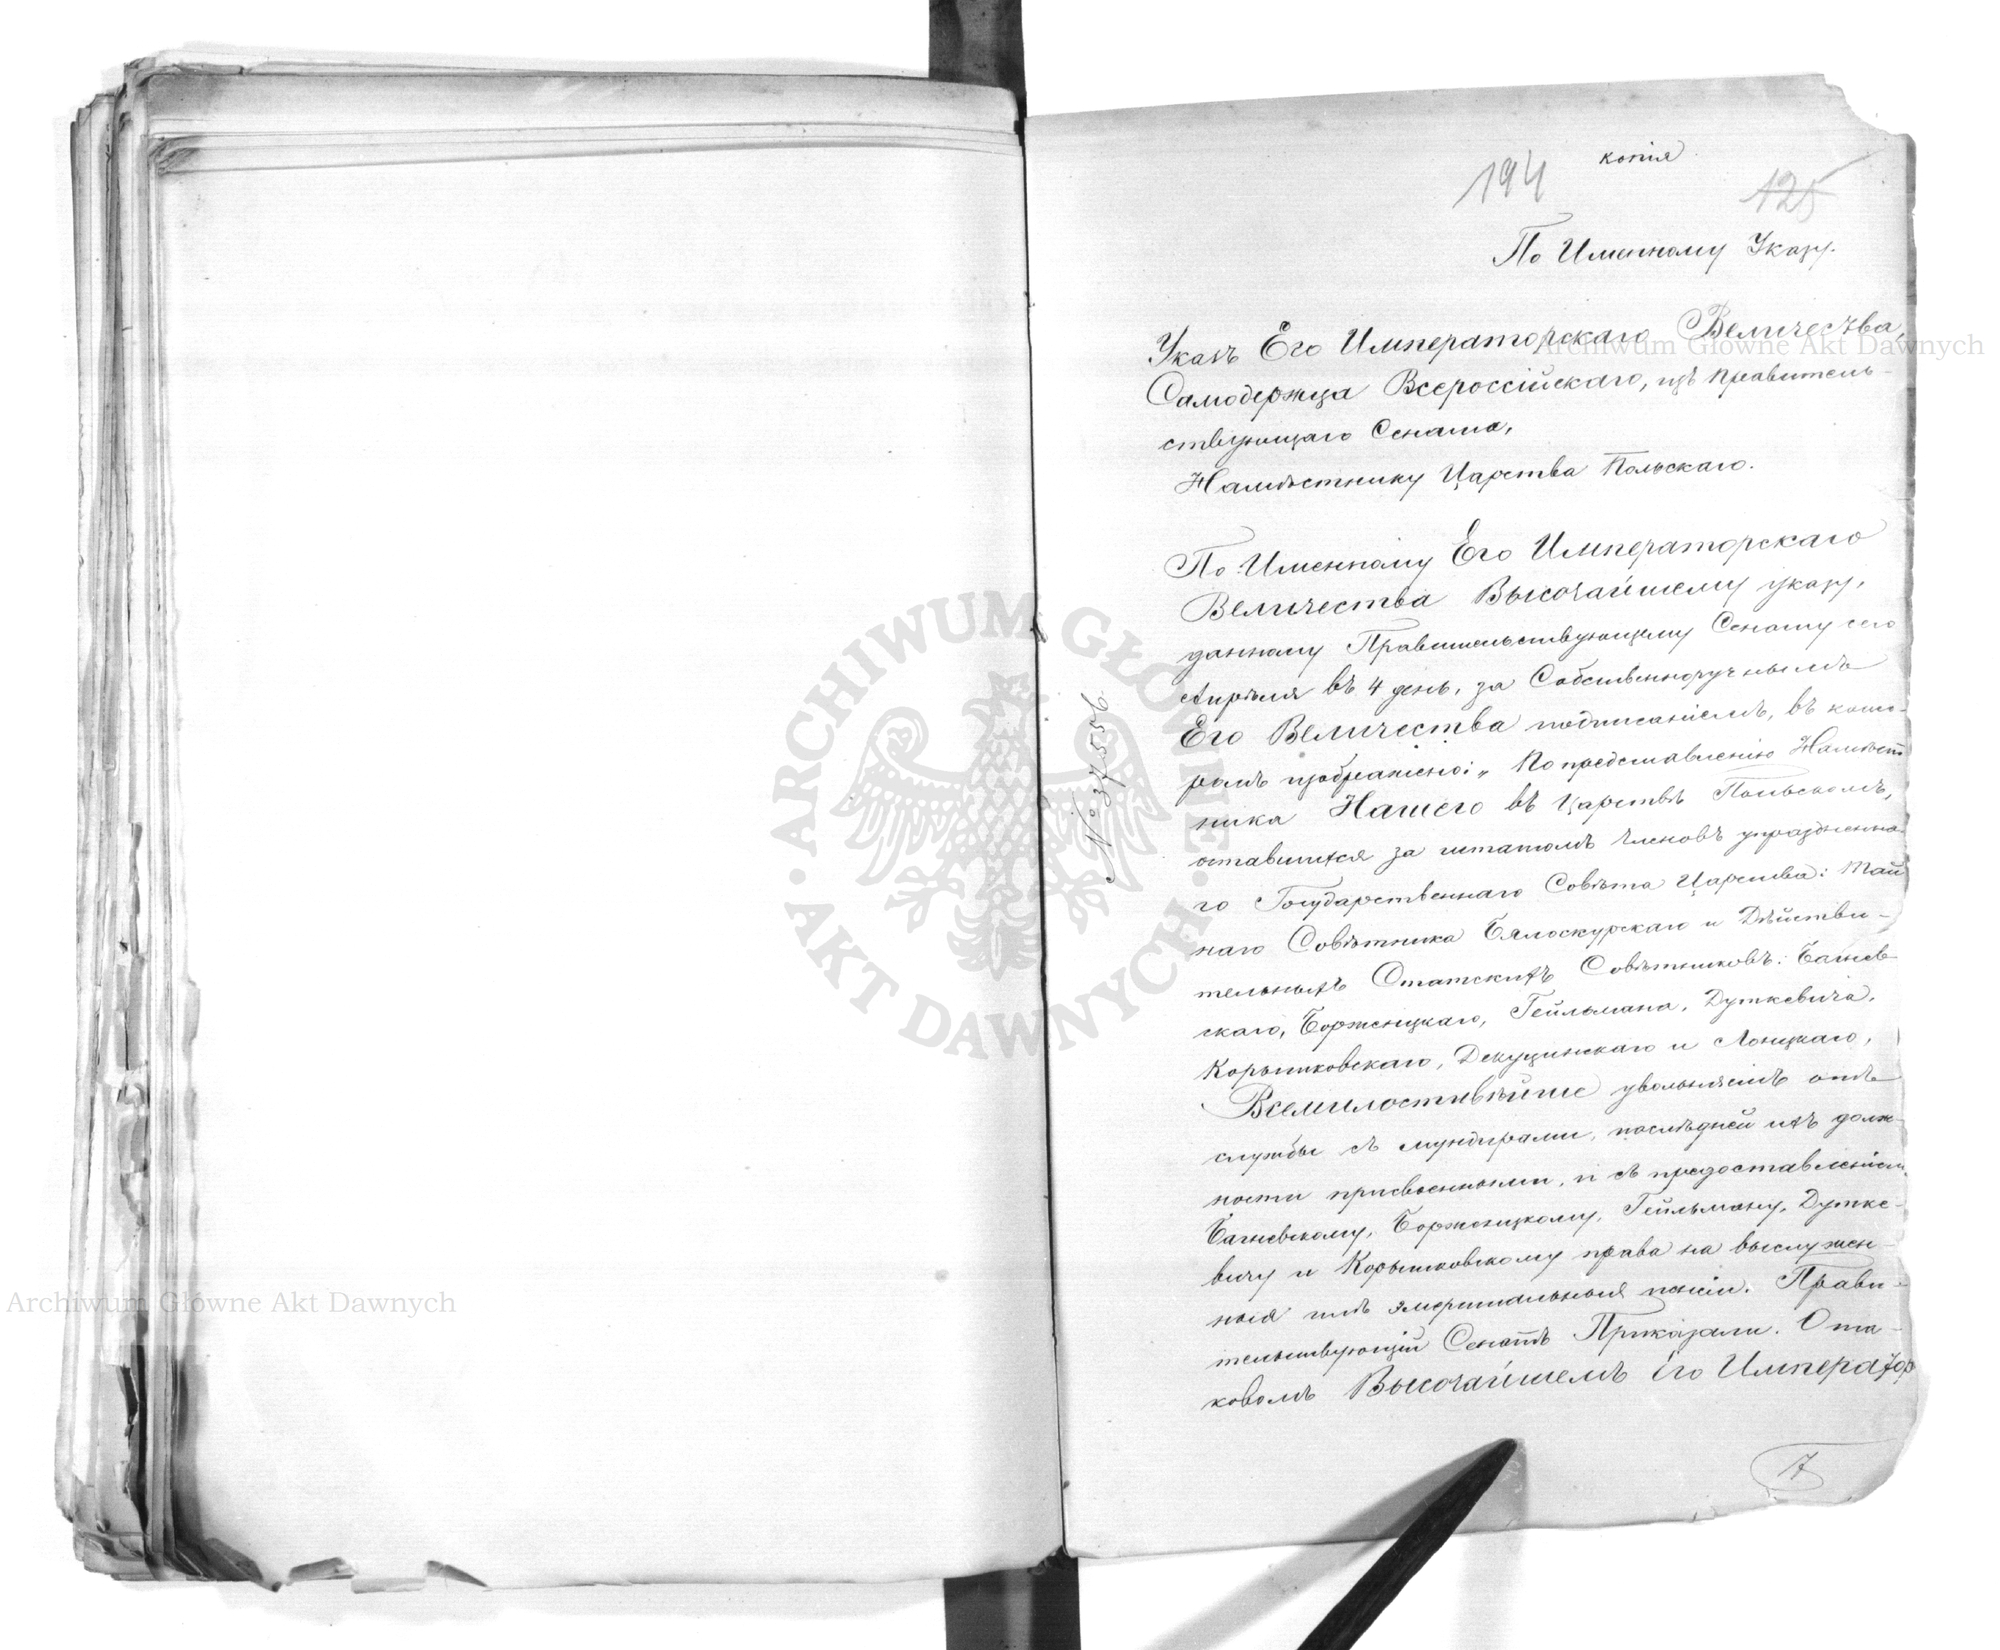 копія
194
125
По Именному Указу.
Указъ Его Императорскаго Величества,
Самодержца Всероссійскаго, изъ Правитель-
ствующаго Сената,
Намѣстнику Царства Польскаго.
По Именному Его Императорскаго
Величества Высочайшему указу,
данному Правительствующему Сенату сего
Апрѣля въ 4 день, за Собственноручнымъ
Его Величества подписаніемъ, въ кото-
ромъ изображено: „По представленію Намѣст
ника Нашего въ Царствѣ Польскомъ,
оставшихся за штатомъ членовъ упраздненна-
го Государственнаго Совѣта Царства: Тай
наго Совѣтника Бялоскурскаго и Дѣйстви-
тельныхъ Статскихъ Совѣтниковъ: Багнев-
скаго, Борженцкаго, Гейльмана, Дуткевича,
Корытковскаго, Декуцинскаго и Лонцкаго,
Всемилостивѣйше увольняемъ отъ
службы съ мундирами, послѣдней ихъ долж-
ности присвоенными, и съ предоставленіем
Багневскому, Борженцкому, Гейльману, Дутке-
вичу и Корытковскому права на выслужен-
ныя ими эмеритальныя пенсіи. Прави-
тельствующій Сенатъ Приказали. О та-
ковомъ Высочайшемъ Его Император
№ 37556
17
Archiwum Główne Akt Dawnych
Archiwum Główne Akt Dawnych
ARCHIWUM GŁÓWNE
AKT DAWNYCH